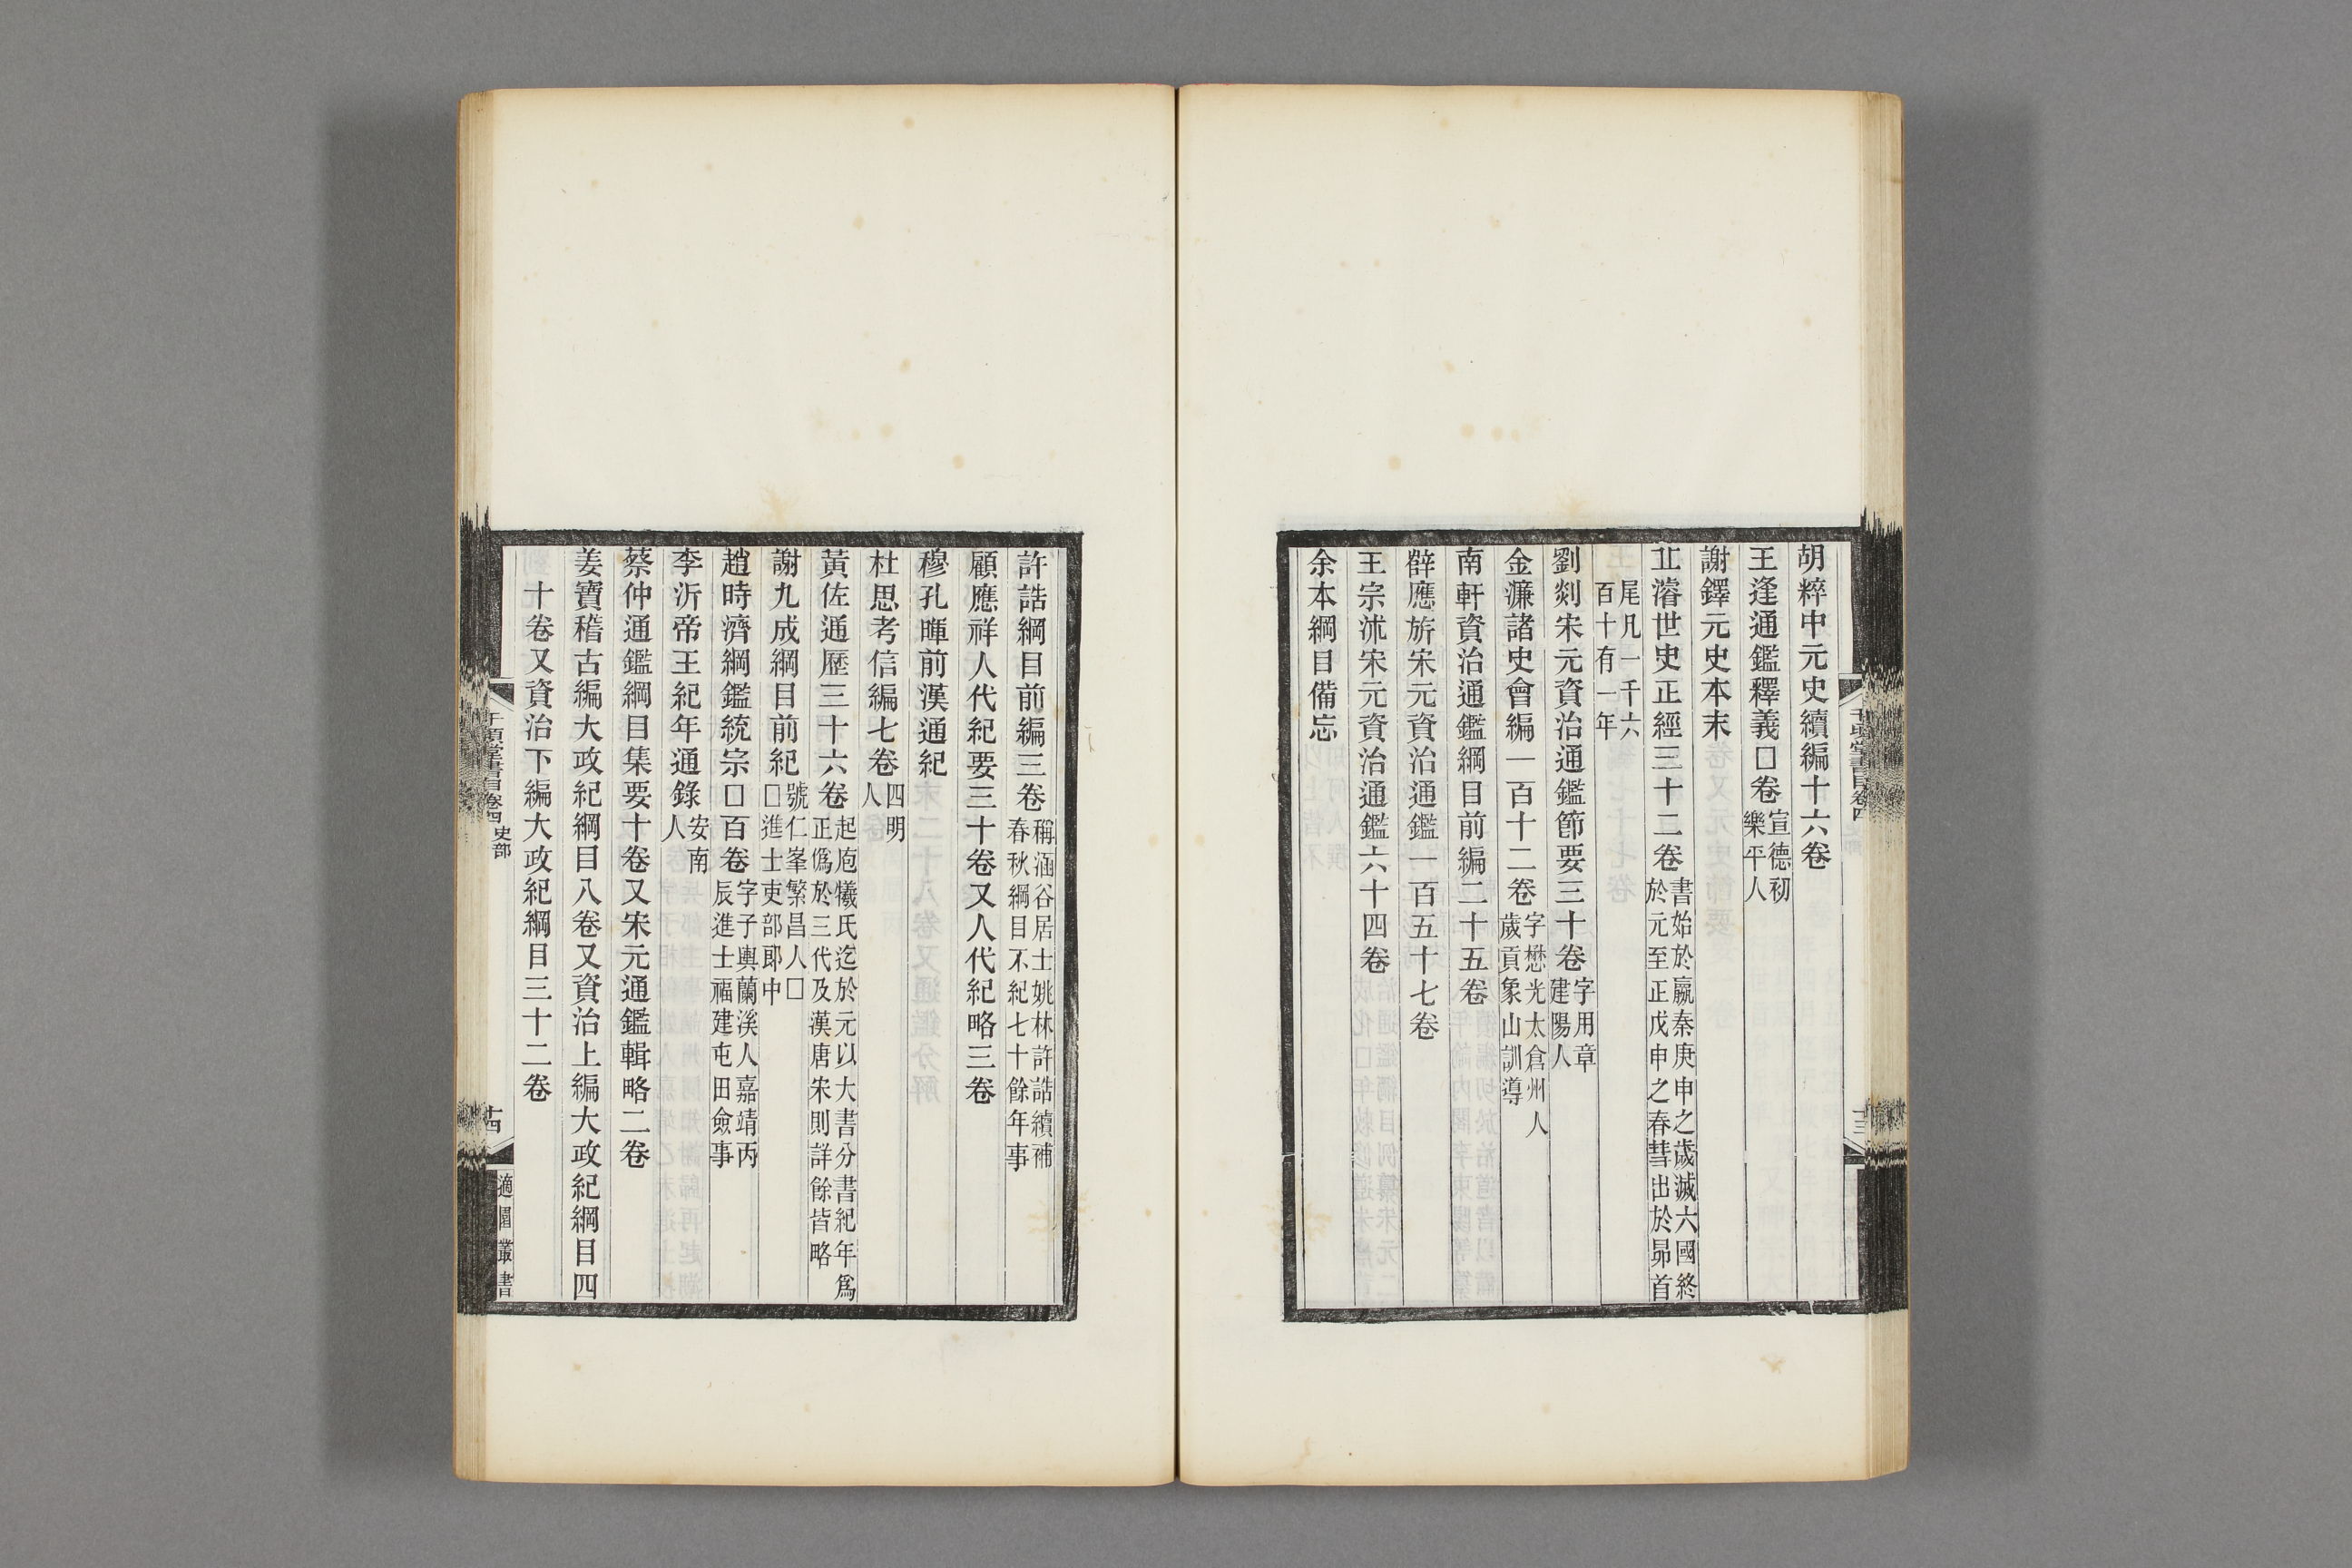 胡粹中元史續編十六卷
王逢通鑑釋義□卷宣德初
樂平人
謝鐸元史本末
丘濬世史正經三十二卷書始於嬴秦庚申之歲滅六國終
於元至正戊申之春彗出於昴首
尾凡一千六
百十有一年
劉剡宋元資治通鑑節要三十卷字用章
建陽人
金濂諸史會編一百十二卷字懋光太倉州人
歲貢象山訓導
南軒資治通鑑綱目前編二十五卷
薛應旂宋元資治通鑑一百五十七卷
王宗沭宋元資治通鑑六十四卷
余本綱目備忘
千頃堂書目卷四
十三
許誥綱目前編三卷稱涵谷居士姚林許誥續補
春秋綱目不紀七十餘年事
顧應祥人代紀要三十卷又人代紀略三卷
穆孔暉前漢通紀
杜思考信編七卷四明
人
黃佐通歷三十六卷起庖犧氏迄於元以大書分書紀年爲
正僞於三代及漢唐宋則詳餘皆略
謝九成綱目前紀號仁峯繁昌人□
□進士吏部郎中
趙時濟綱鑑統宗□百卷字子輿蘭溪人嘉靖丙
辰進士福建屯田僉事
李沂帝王紀年通錄安南
人
蔡仲通鑑綱目集要十卷又宋元通鑑輯略二卷
姜寶稽古編大政紀綱目八卷又資治上編大政紀綱目四
十卷又資治下編大政紀綱目三十二卷
千頃堂書目卷四史部
十四
適園叢書